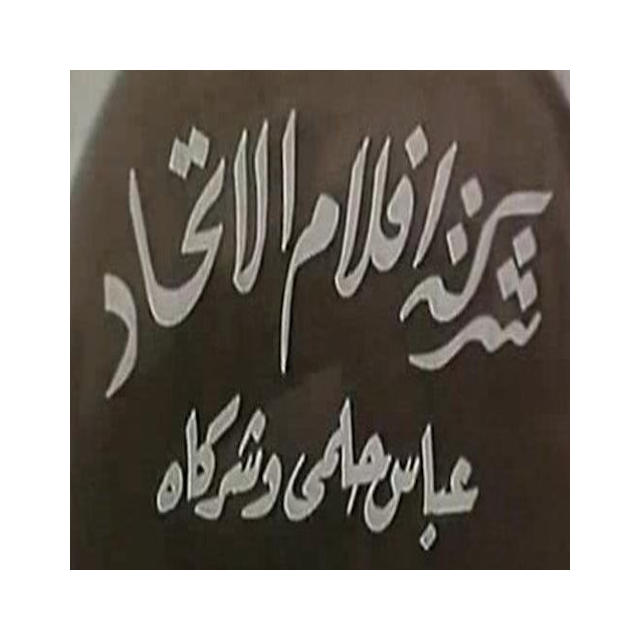 شركة افلام الاتحاد
عباس حلمى وشركاه